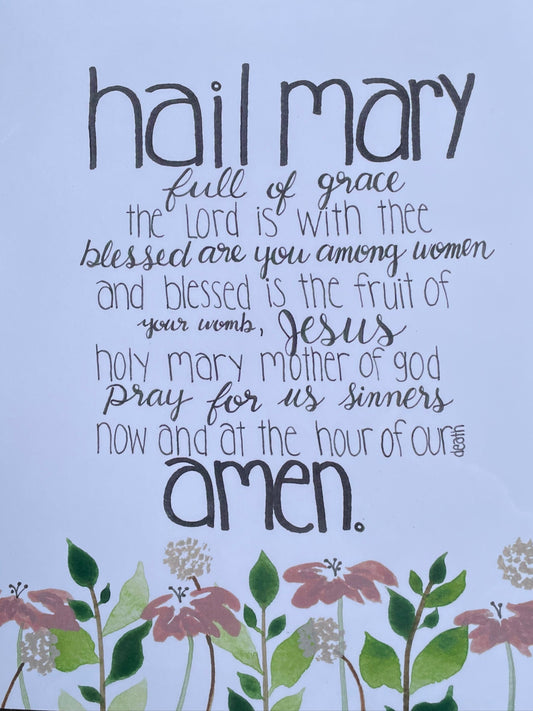 hail mary
full of grace
the Lord is with thee
blessed are you among women
and blessed is the fruit of
your womb, Jesus
holy mary mother of god
pray for us sinners
now and at the hour of our death
amen.